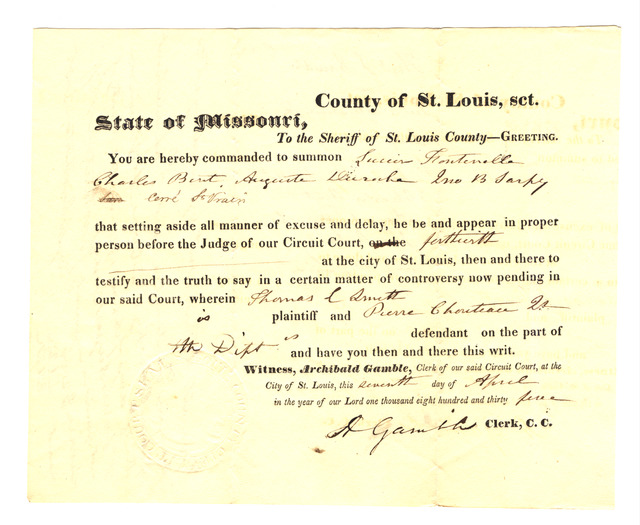 County of St. Louis, sct.
State of Missouri,
To the Sheriff of St. Louis County—GREETING.
You are hereby commanded to summon Lucien Fontenelle
Charles Bent, Auguste Jno B Sarpy
Cerré St Vrain
that setting aside all manner of excuse and delay, he be and appear in proper
person before the Judge of our Circuit Court, on the forthwith
at the city of St. Louis, then and there to
testify and the truth to say in a certain matter of controversy now pending in
our said Court, wherein Thomas L Smith
is plaintiff and Pierre Chouteau
defendant on the part of
the Dift is and have you then and there this writ.
Witness, Archibald Gamble, Clerk of our said Circuit Court, at the
City of St. Louis, this seventh day of April
in the year of our Lord one thousand eight hundred and thirty five
A Gamble Clerk, C. C.